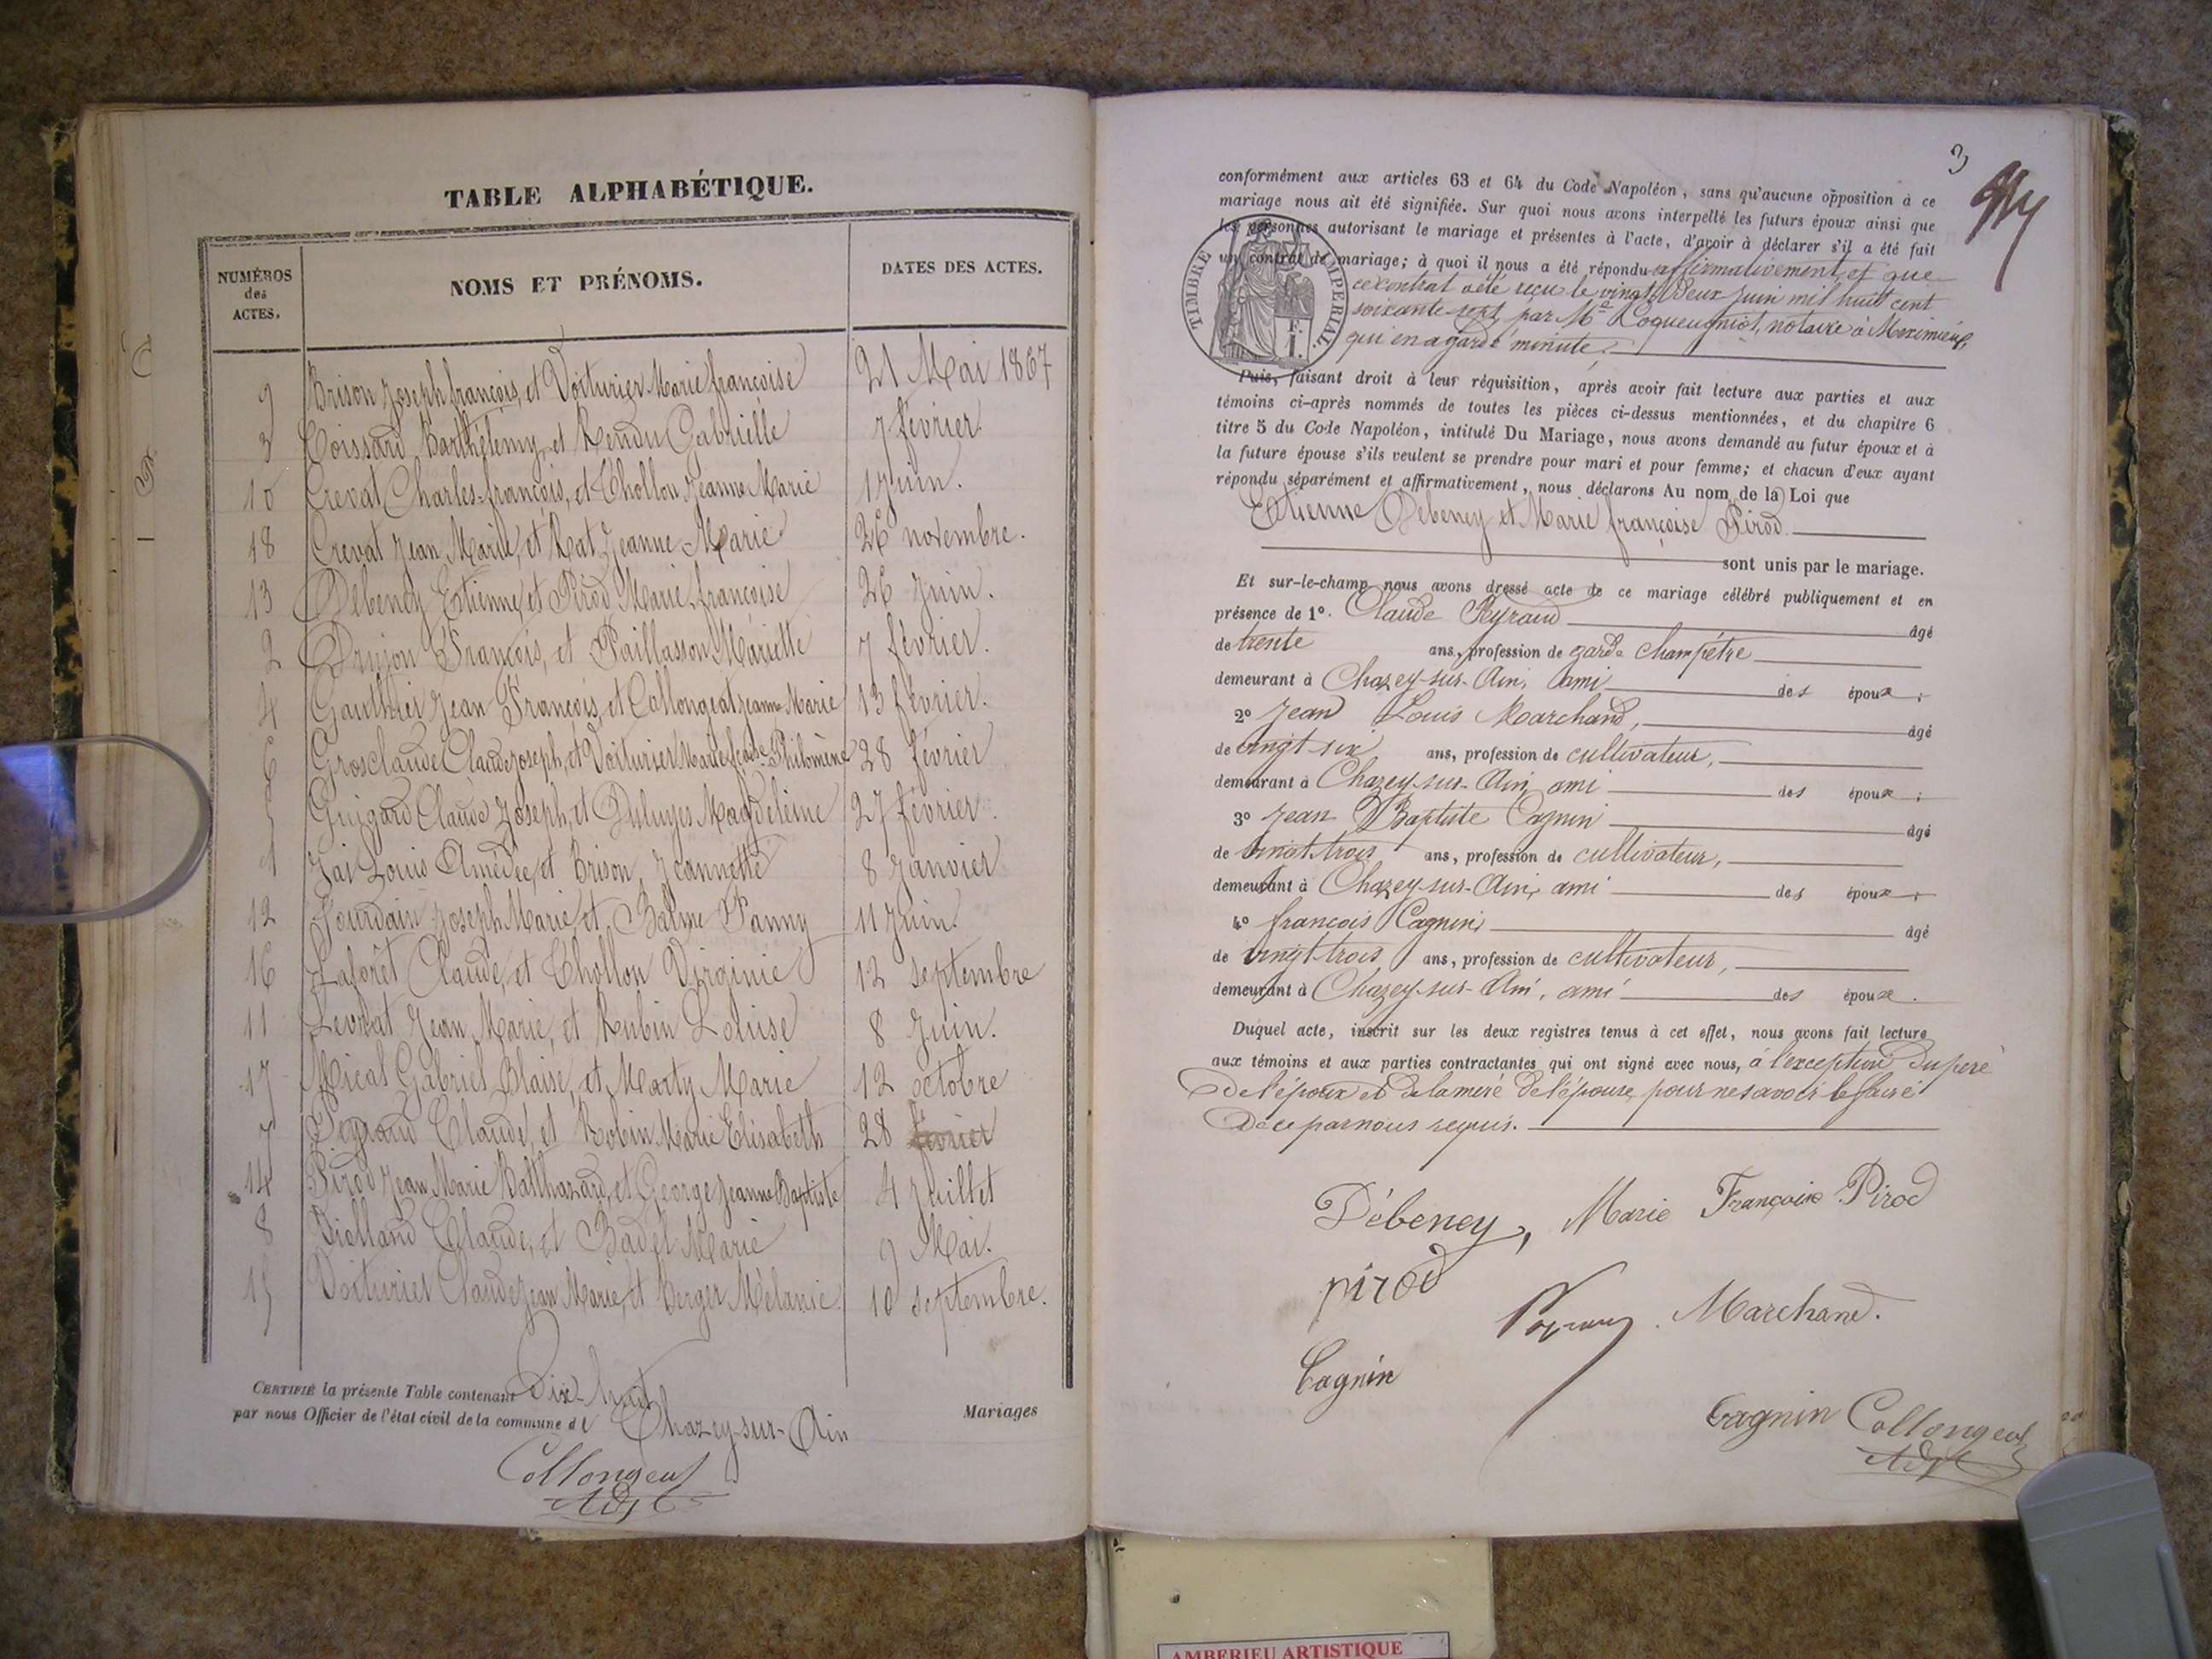 TABLE ALPHABÉTIQUE.
NUMÉROS
des
ACTES.
NOMS ET PRÉNOMS.
DATES DES ACTES.
9 Brison Joseph françois, et Voiturier Marie françoise 21 Mai 1867
3 Coissard Barthélemy, et Rendu Gabrielle 7 février.
10 Crevat Charles-françois, et Chollon Jeanne Marie 1 Juin.
18 Crevat Jean Marie, et Rat Jeanne-Marie 26 novembre.
13 Débeney Etienne, et Pirod Marie françoise 26 Juin.
2 Drujon François, et Paillasson Mariette 7 février.
4 Gauthier Jean François, et Collongeat Jeanne Marie 13 février.
6 Grosclaude Claude Joseph, et Voiturier Marie fçoise Philomène 28 février
5 Guigard Claude Joseph, et Duluyes Magdeleine 27 février.
1 Jai Louis Amédée, et Brison, Jeannette 8 Janvier
12 Jourdain Joseph Marie, et Balme Fanny 11 Juin.
16 Laforêt Claude, et Chollon Virginie 12 septembre
11 Levrat Jean Marie, et Rubin Louise 8 Juin.
17 Micat Gabriel Blaise, et Marty Marie 12 octobre
7 Peyraud Claude, et Robin Marie Elisabeth 28 février
14 Pirod Jean Marie Balthazard, et George Jeanne Baptiste 4 Juillet
8 Violland Claude, et Badet Marie 9 Mai.
15 Voiturier Claude Jean Marie, et Berger Mélanie. 10 septembre.
CERTIFIÉ la présente Table contenant Dix-huit Mariages
par nous Officier de l'état civil de la commune de Chazey-sur-Ain
Collongeat
Adjt
3
conformément aux articles 63 et 64 du Code Napoléon, sans qu'aucune opposition à ce
mariage nous ait été signifiée. Sur quoi nous avons interpellé les futurs époux ainsi que
les personnes autorisant le mariage et présentes à l'acte, d'avoir à déclarer s'il a été fait
un contrat de mariage; à quoi il nous a été répondu affirmativement, et que
ce contrat a été reçu le vingt deux Juin mil huit cent
soixante sept, par Me Roqueugniot, notaire à Meximieux,
qui en a gardé minute.
TIMBRE IMPERIAL.
Puis, faisant droit à leur réquisition, après avoir fait lecture aux parties et aux
témoins ci-après nommés de toutes les pièces ci-dessus mentionnées, et du chapitre 6
titre 5 du Code Napoléon, intitulé Du Mariage, nous avons demandé au futur époux et à
la future épouse s'ils veulent se prendre pour mari et pour femme; et chacun d'eux ayant
répondu séparément et affirmativement, nous déclarons Au nom de la Loi que
Etienne Débeney et Marie françoise Pirod.
sont unis par le mariage.
Et sur-le-champ nous avons dressé acte de ce mariage célébré publiquement et en
présence de 1º. Claude Peyraud âgé
de trente ans, profession de garde champêtre
demeurant à Chazey-sur-Ain, ami des époux;
2º Jean Louis Marchand, âgé
de vingt six ans, profession de cultivateur,
demeurant à Chazey-sur-Ain, ami des époux;
3º Jean Baptiste Cagnin âgé
de vingt trois ans, profession de cultivateur,
demeurant à Chazey-sur-Ain, ami des époux;
4º françois Cagnin, âgé
de vingt trois ans, profession de cultivateur,
demeurant à Chazey-sur-Ain, ami des époux.
Duquel acte, inscrit sur les deux registres tenus à cet effet, nous avons fait lecture
aux témoins et aux parties contractantes qui ont signé avec nous, à l'exception du père
de l'époux et de la mère de l'épouse, pour ne savoir le faire
de ce par nous requis.
Débeney, Marie Françoise Pirod
pirod
Peyraud. Marchand.
Cagnin
Cagnin Collongeat
Adjt
AMBERIEU ARTISTIQUE